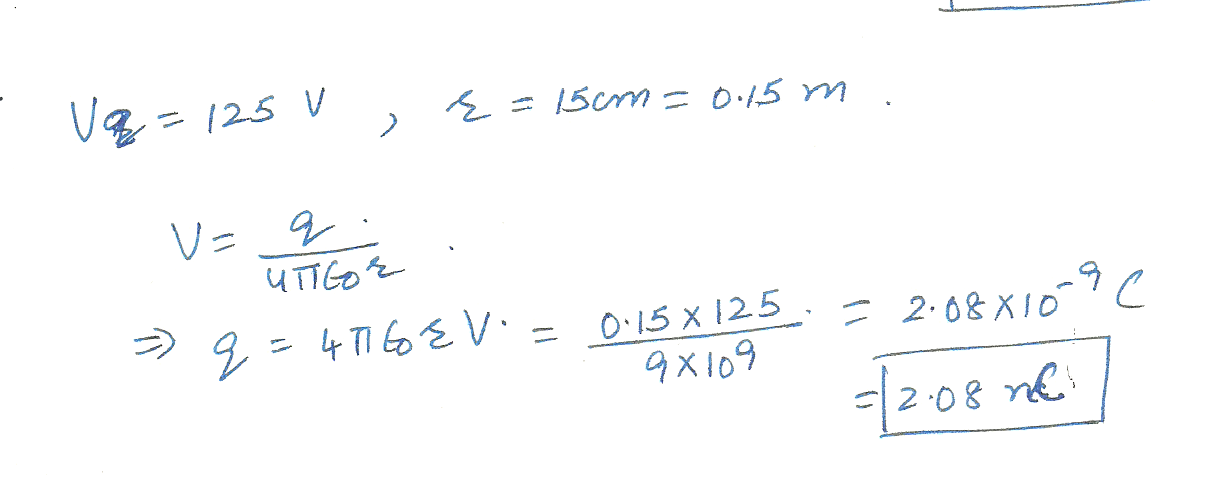 V = 125 V , r = 15cm = 0.15 m .
V = q / 4πε₀r
⇒ q = 4πε₀rV = 0.15 × 125 / 9×10⁹ = 2.08×10⁻⁹ C
= 2.08 nC